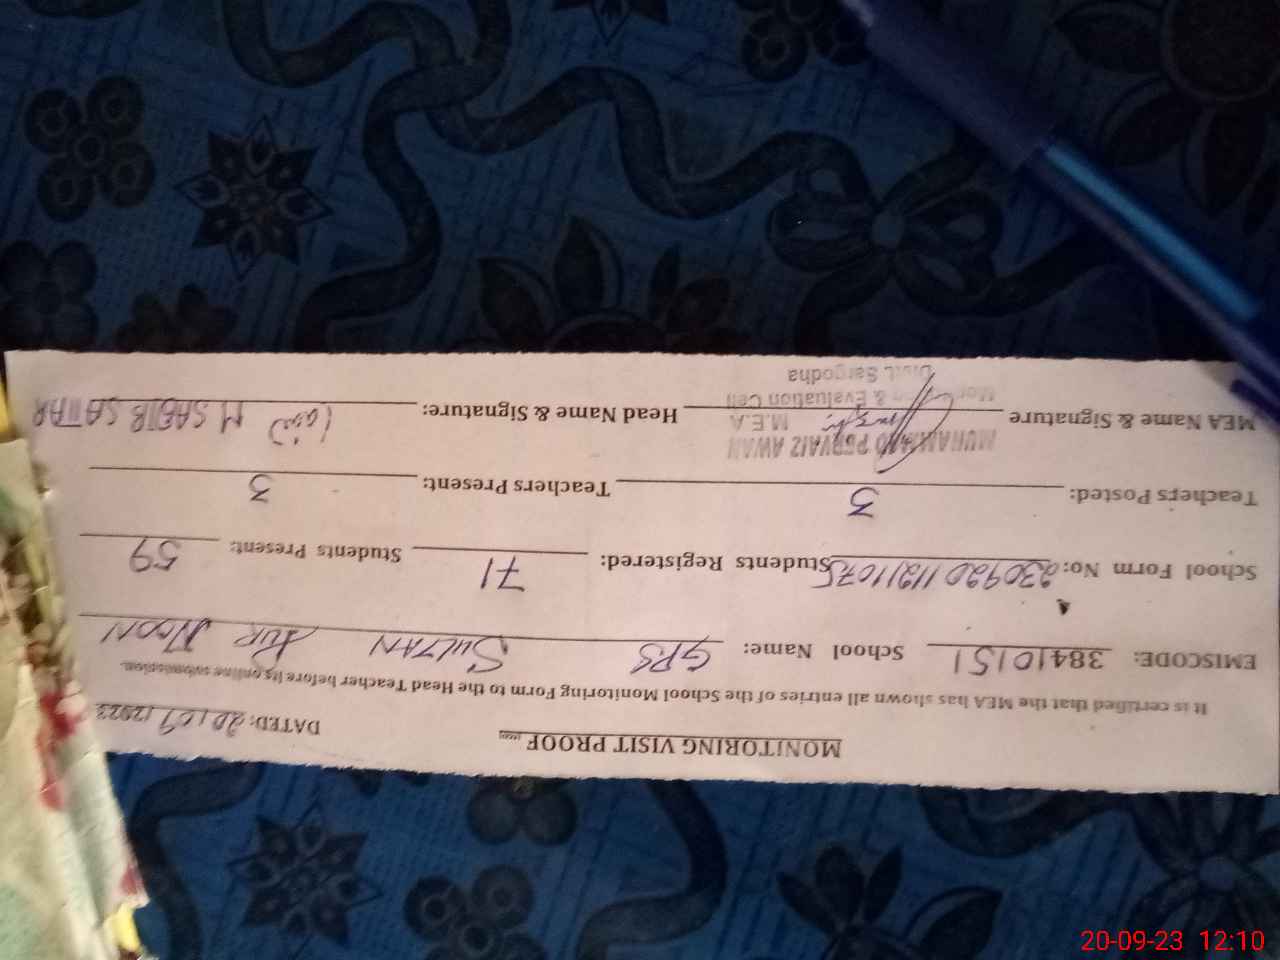 MONITORING VISIT PROOF
DATED: 20/09/2023
It is certified that the MEA has shown all entries of the School Monitoring Form to the Head Teacher before its online submission.
EMISCODE: 38410151 School Name: GPS SULTAN PUR NOON
School Form No: Students Registered: 71 Students Present: 59
Teachers Posted: 3 Teachers Present: 3
MEA Name & Signature Head Name & Signature: M SABIR SATTAR
MUHAMMAD PERVAIZ AWAN
M.E.A
Monitoring & Evaluation Cell
Distt. Sargodha
20-09-23 12:10